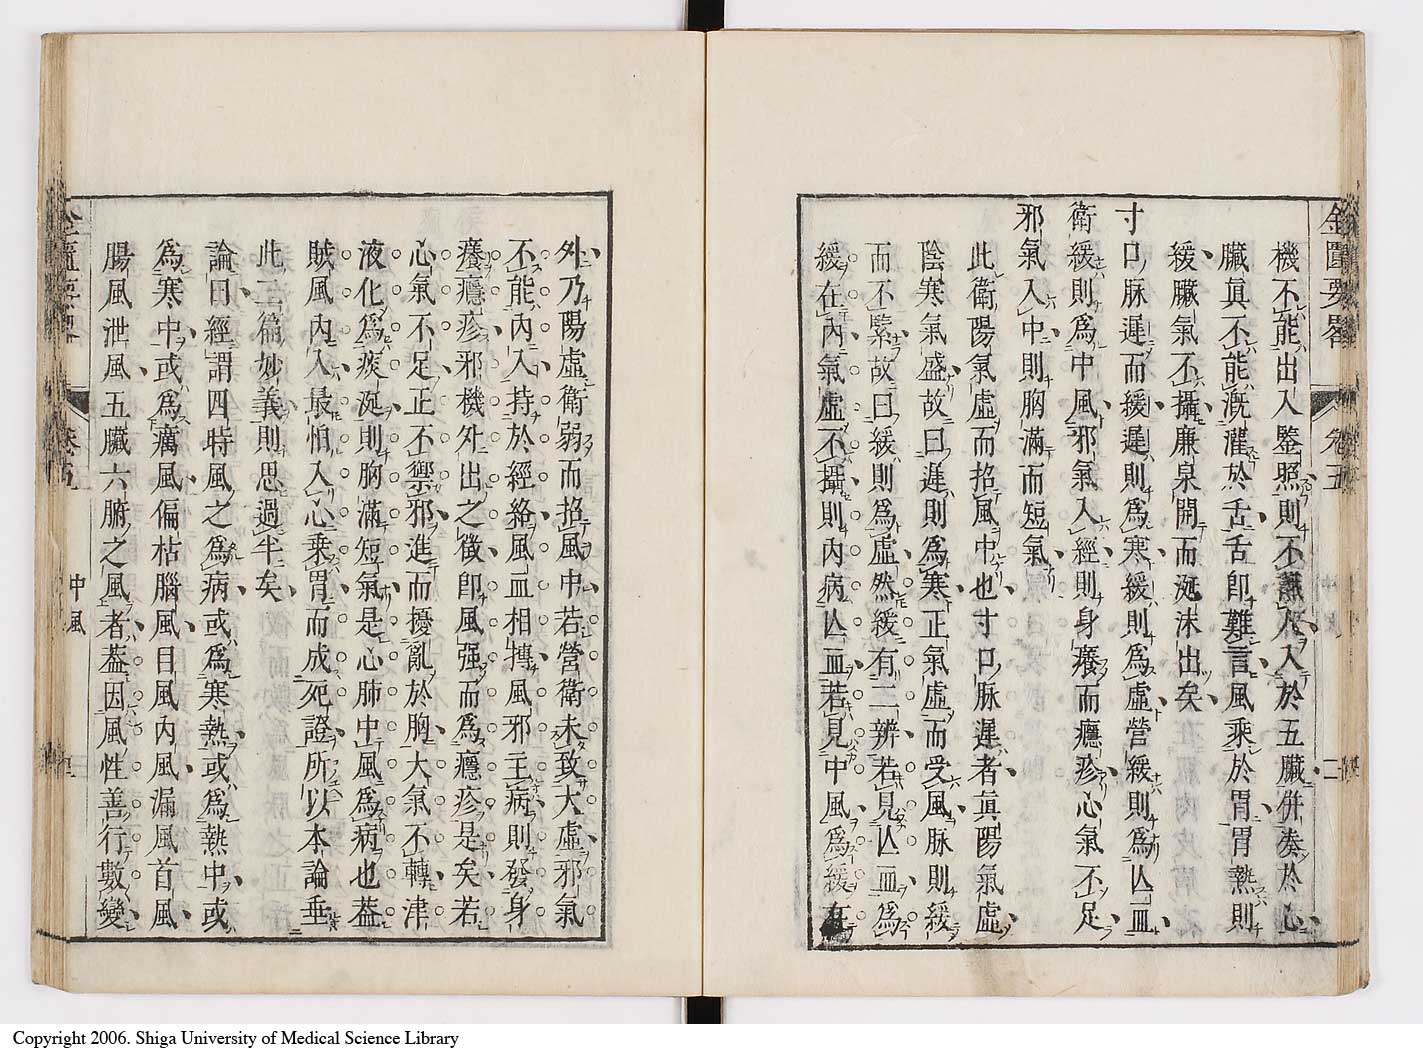 金匱要畧 卷五 二
機不能出入鑒照則不識人入於五臟併湊於心
臟眞不能漑灌於舌舌卽難言風乘於胃胃熱則
緩臟氣不攝廉泉開而涎沫出矣
寸口脉遲而緩遲則爲寒緩則爲虛營緩則爲亾血
衛緩則爲中風邪氣入經則身癢而癮疹心氣不足
邪氣入中則胸滿而短氣
此衛陽氣虛而招風中也寸口脉遲者眞陽氣虛
陰寒氣盛故曰遲則爲寒正氣虛而受風脉則緩
而不緊故曰緩則爲虛然緩有二辨若見亾血爲
緩在內氣虛不攝則內病亾血若見中風爲緩在
外乃陽虛衛弱而招風中若營衛未致大虛邪氣
不能內入持於經絡風血相摶風邪王病則發身
癢癮疹邪機外出之徵卽風强而爲癮疹是矣若
心氣不足正不禦邪進而擾亂於胸大氣不轉津
液化爲痰涎則胸滿短氣是心肺中風爲病也葢
賊風內入最怕入心乘胃而成死證所以本論垂
此一篇妙義則思過半矣
論曰經謂四時風之爲病或爲寒熱或爲熱中或
爲寒中或爲癘風偏枯腦風目風內風漏風首風
腸風泄風五臟六腑之風者葢因風性善行數變
卷五 中風
Copyright 2006. Shiga University of Medical Science Library